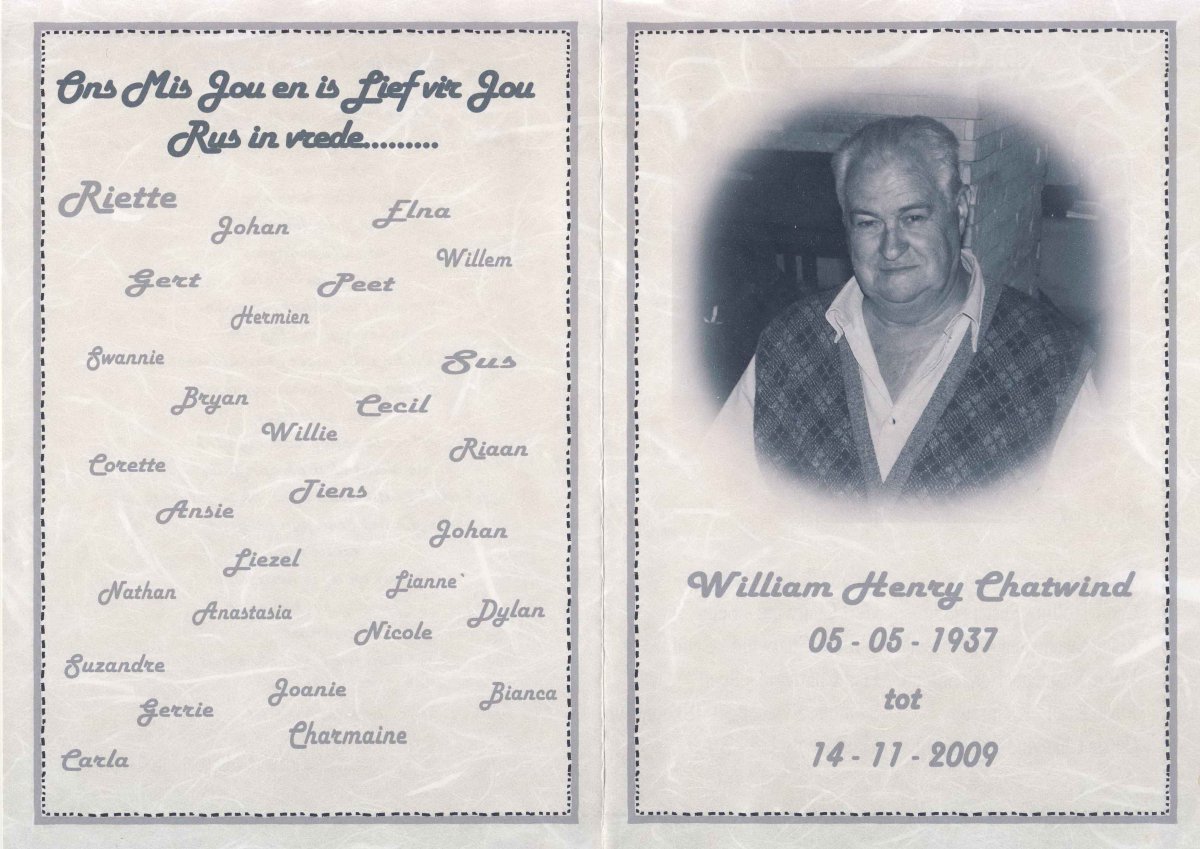 Ons Mis Jou en is Lief vir Jou
Rus in vrede.........
Riette
Johan
Elna
Willem
Gert
Peet
Hermien
Swannie
Sus
Bryan
Cecil
Willie
Riaan
Corette
Tiens
Ansie
Johan
Liezel
Lianne`
Nathan
Anastasia
Dylan
Nicole
Suzandre
Joanie
Bianca
Gerrie
Charmaine
Carla
William Henry Chatwind
05 - 05 - 1937
tot
14 - 11 - 2009